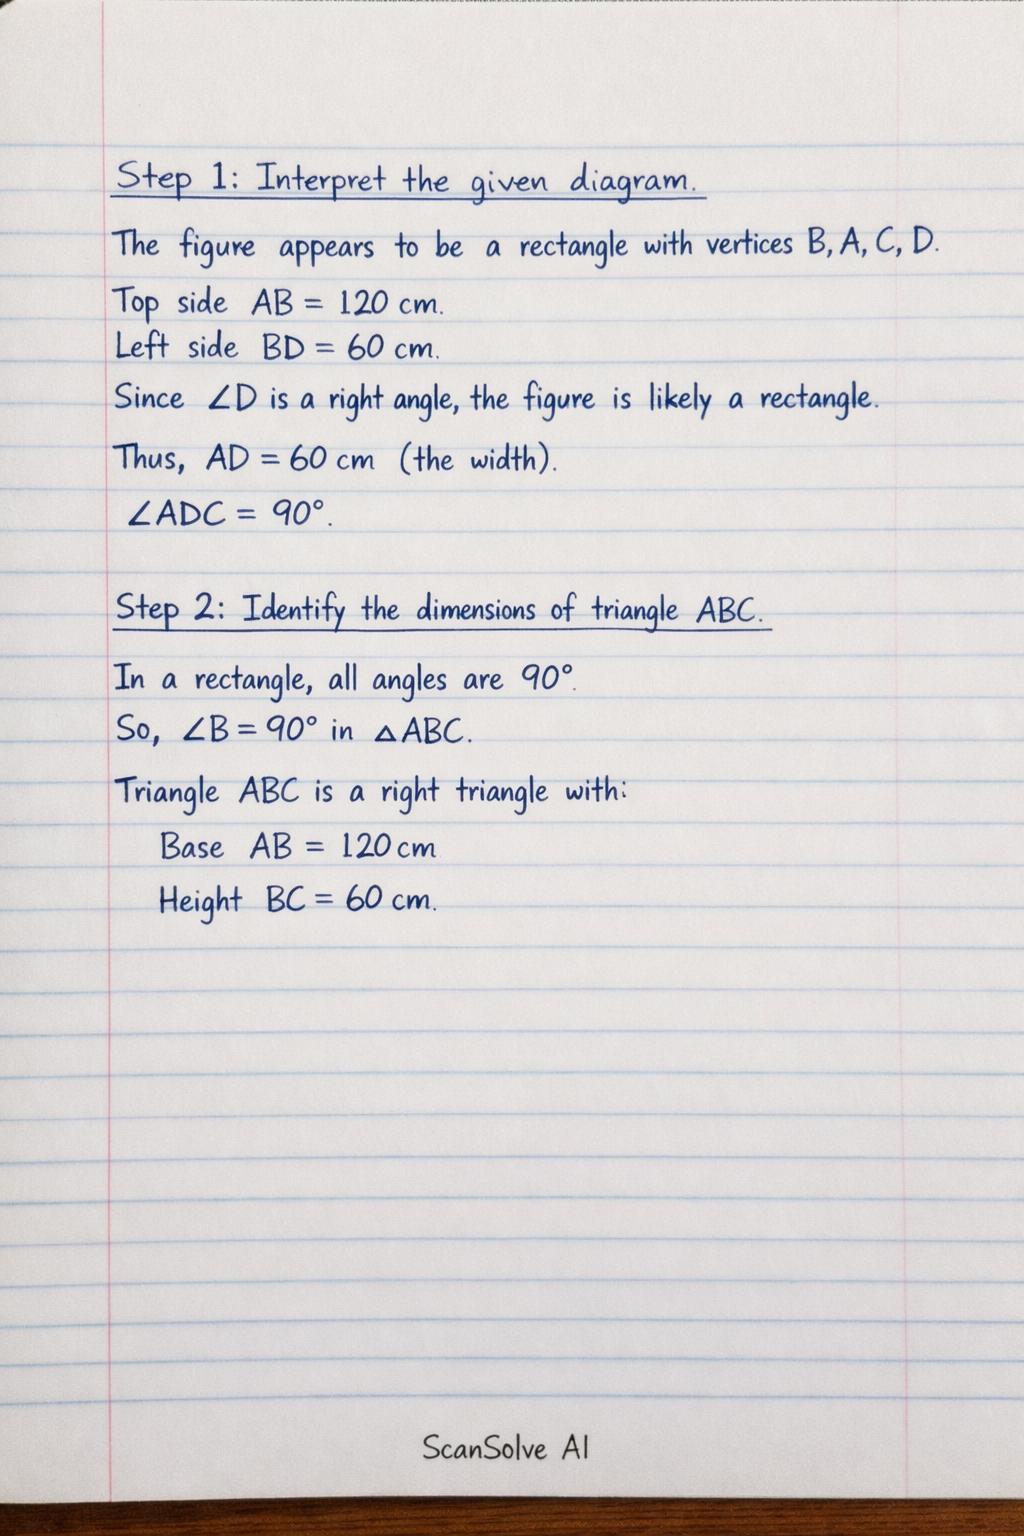 Step 1: Interpret the given diagram.
The figure appears to be a rectangle with vertices B, A, C, D.
Top side AB = 120 cm.
Left side BD = 60 cm.
Since ∠D is a right angle, the figure is likely a rectangle.
Thus, AD = 60 cm (the width).
∠ADC = 90°.
Step 2: Identify the dimensions of triangle ABC.
In a rectangle, all angles are 90°.
So, ∠B = 90° in △ABC.
Triangle ABC is a right triangle with:
Base AB = 120 cm
Height BC = 60 cm.
ScanSolve AI